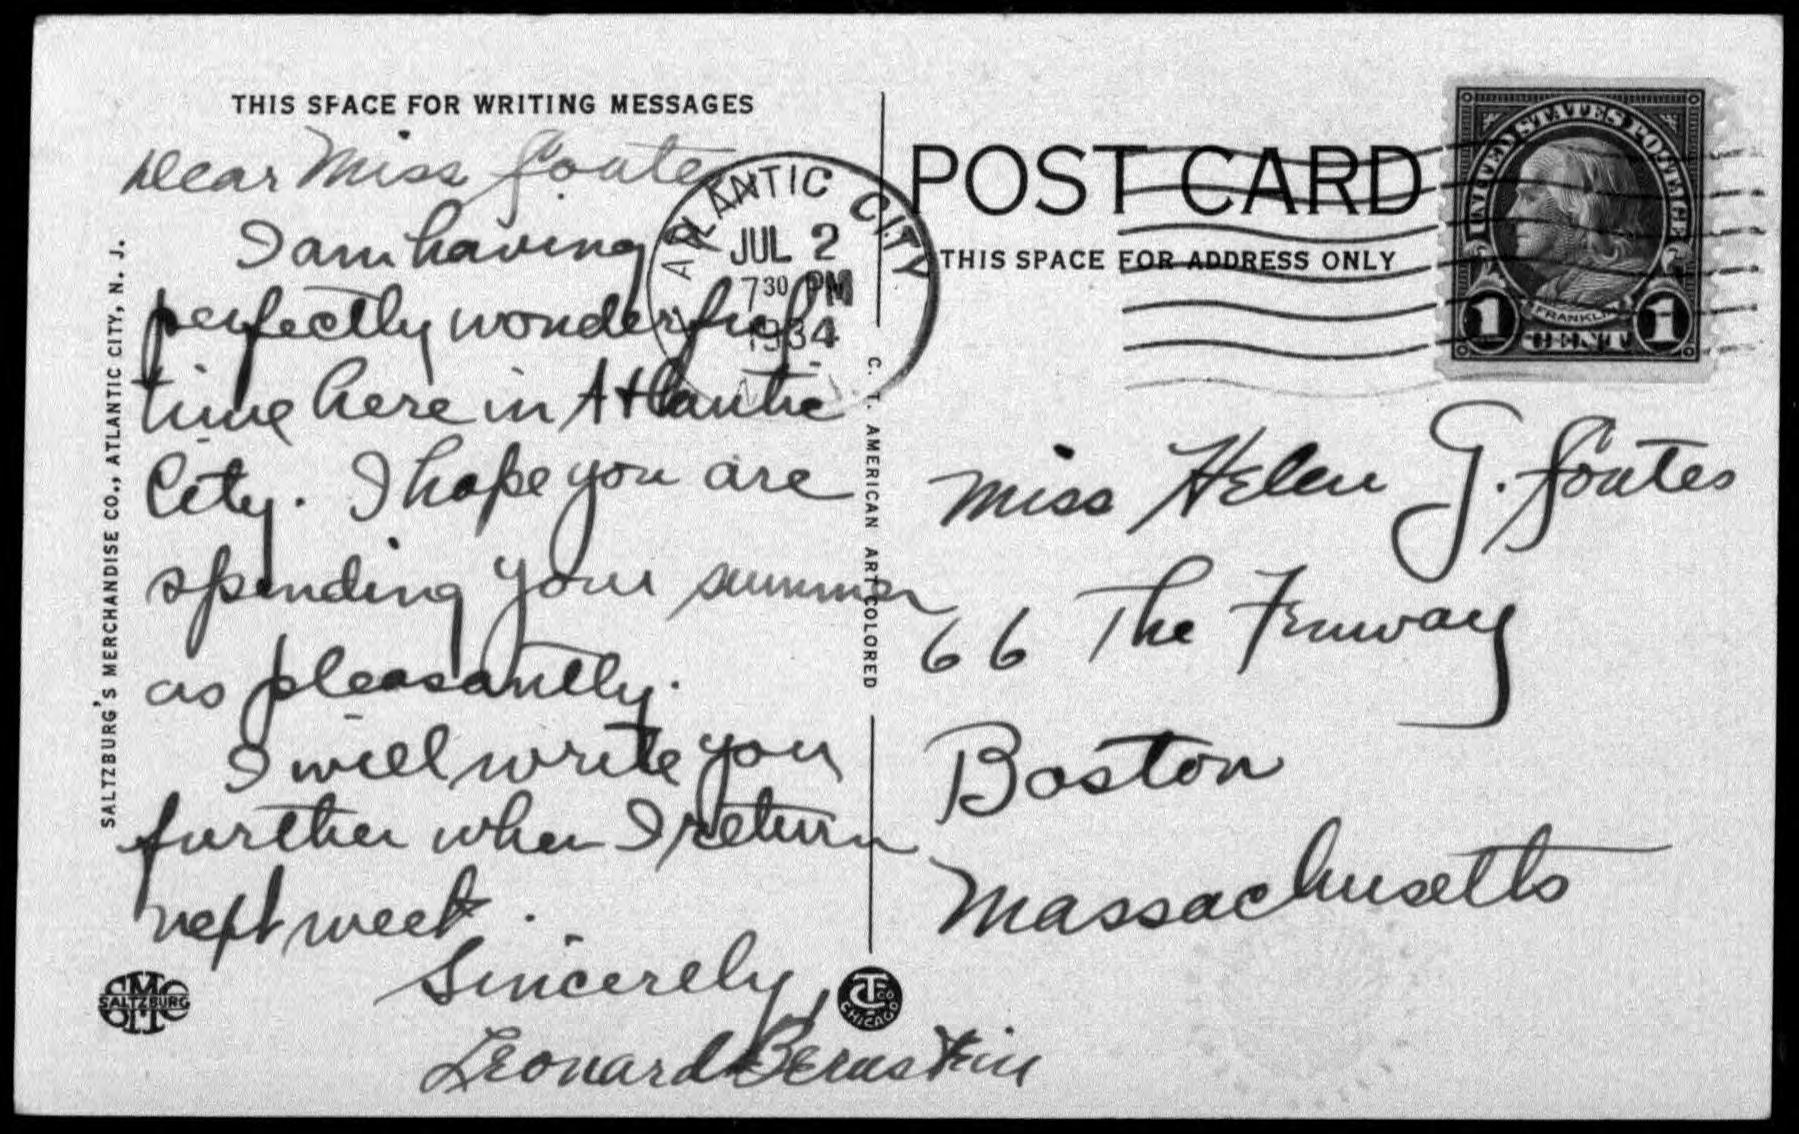 THIS SPACE FOR WRITING MESSAGES
Dear Miss Coates
I am having
perfectly wonderful
time here in Atlantic
City. I hope you are
spending your summer
as pleasantly.
I will write you
further when I return
next week.
Sincerely,
Leonard Bernstein
SALTZBURG'S MERCHANDISE CO., ATLANTIC CITY, N. J.
SALTZBURG
ATLANTIC CITY
JUL 2
7 30 PM
1934
C. T. AMERICAN ART COLORED
CHICAGO
POST CARD
THIS SPACE FOR ADDRESS ONLY
UNITED STATES POSTAGE
FRANKLIN
1 CENT 1
Miss Helen G. Coates
66 The Fenway
Boston
Massachusetts